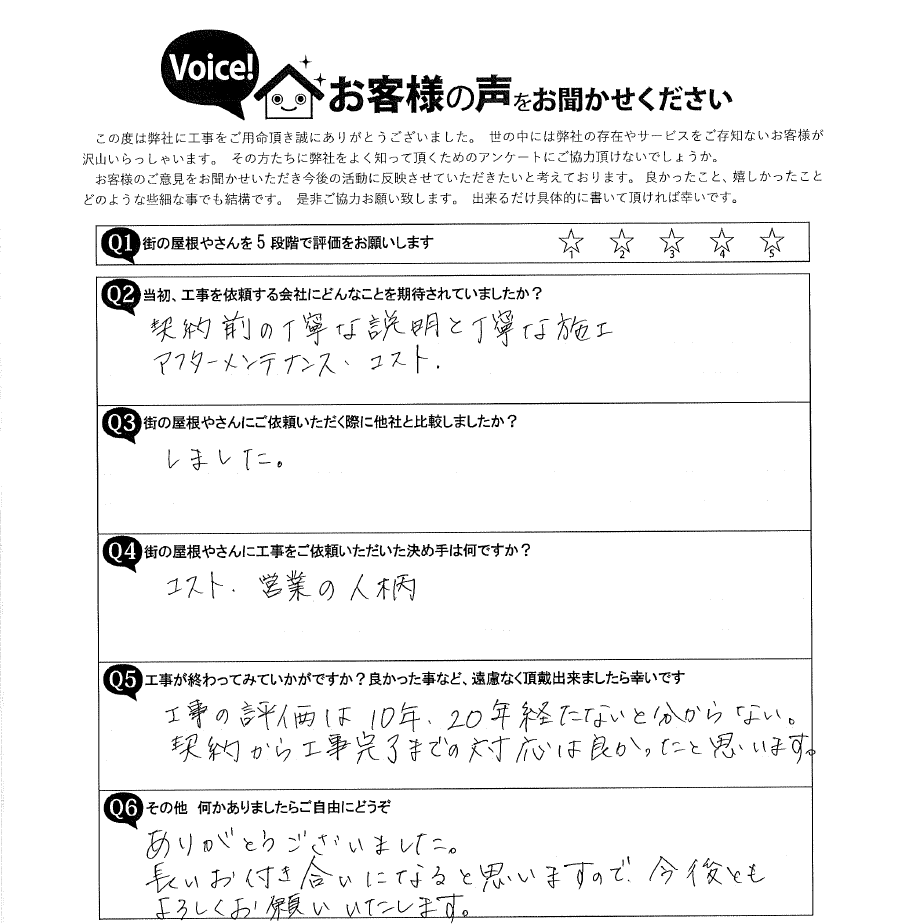 Voice!
お客様の声をお聞かせください
この度は弊社に工事をご用命頂き誠にありがとうございました。 世の中には弊社の存在やサービスをご存知ないお客様が
沢山いらっしゃいます。 その方たちに弊社をよく知って頂くためのアンケートにご協力頂けないでしょうか。
お客様のご意見をお聞かせいただき今後の活動に反映させていただきたいと考えております。 良かったこと、嬉しかったこと
どのような些細な事でも結構です。 是非ご協力お願い致します。 出来るだけ具体的に書いて頂ければ幸いです。
Q1 街の屋根やさんを5段階で評価をお願いします ☆ ☆ ☆ ☆ ☆
1 2 3 4 5
Q2 当初、工事を依頼する会社にどんなことを期待されていましたか?
契約前の丁寧な説明と丁寧な施工
アフターメンテナンス、コスト.
Q3 街の屋根やさんにご依頼いただく際に他社と比較しましたか?
しました。
Q4 街の屋根やさんに工事をご依頼いただいた決め手は何ですか?
コスト. 営業の人柄
Q5 工事が終わってみていかがですか?良かった事など、遠慮なく頂戴出来ましたら幸いです
工事の評価は10年、20年経たないと分からない。
契約から工事完了までの対応は良かったと思います。
Q6 その他 何かありましたらご自由にどうぞ
ありがとうございました。
長いお付き合いになると思いますので、今後とも
よろしくお願いいたします。